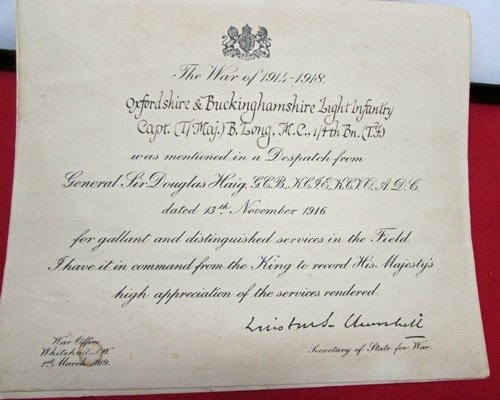 The War of 1914-1918.
Oxfordshire & Buckinghamshire Light Infantry
Capt. (T/Maj.) B. Long, M.C., 1/4th Bn. (T.F.)
was mentioned in a Despatch from
General Sir Douglas Haig, G.C.B., K.C.I.E., K.C.V.O., A.D.C.
dated 13th November 1916
for gallant and distinguished services in the Field.
I have it in command from the King to record His Majesty's
high appreciation of the services rendered.
Winston S. Churchill
War Office
Whitehall, S.W.
1st March 1919.
Secretary of State for War.